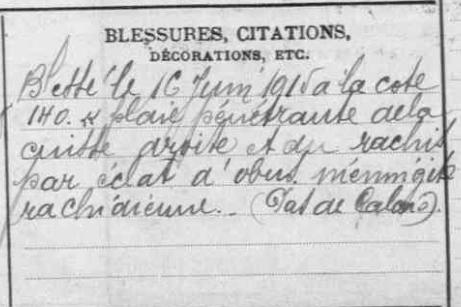 BLESSURES, CITATIONS,
DÉCORATIONS, ETC.
Blessé le 16 Juin 1915 à la cote
140. plaie pénétrante de la
cuisse droite et du rachis
par éclat d'obus. méningite
rachidienne. (Pas de Calais).